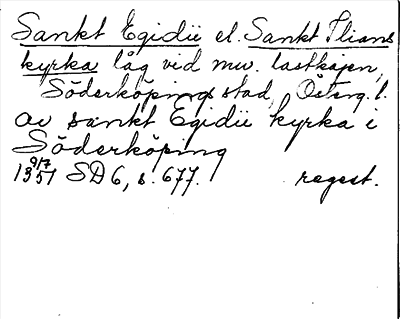 Sankt Egidii el. Sankt Ilians
kyrka låg vid nuv. lastkajen,
Söderköpings stad, Österg. l.
av sankt Egidii kyrka i
Söderköping
9/7
1351 SD 6, s. 677. regest.